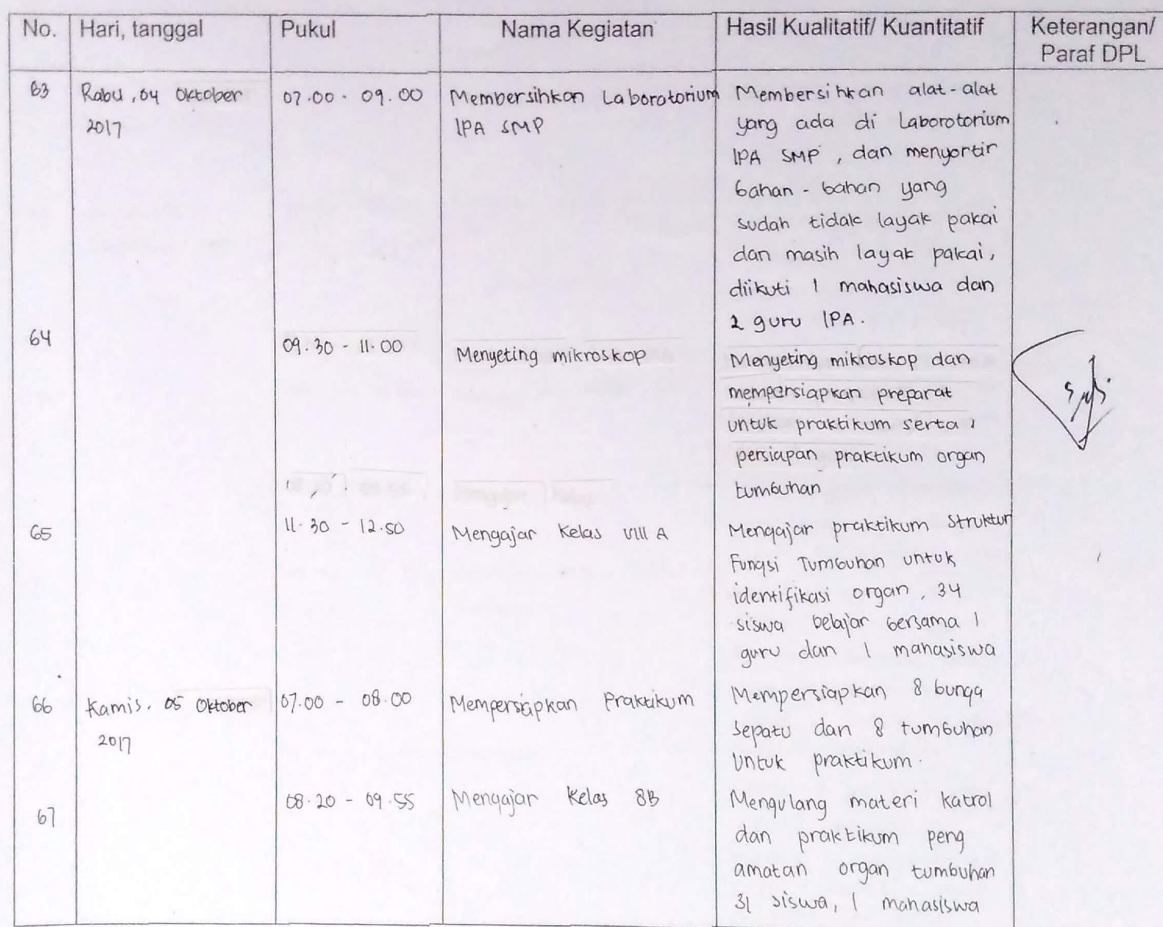 No. Hari, tanggal Pukul Nama Kegiatan Hasil Kualitatif/ Kuantitatif Keterangan/
Paraf DPL
63 Rabu, 04 Oktober 07.00 - 09.00 Membersihkan Laboratorium Membersihkan alat-alat
2017 IPA SMP yang ada di Laborotorium
IPA SMP, dan menyortir
bahan - bahan yang
sudah tidak layak pakai
dan masih layak pakai,
diikuti 1 mahasiswa dan
2 guru IPA.
64 09.30 - 11.00 Menyeting mikroskop Menyeting mikroskop dan
mempersiapkan preparat
untuk praktikum serta
persiapan praktikum organ
tumbuhan
65 11.30 - 12.50 Mengajar Kelas VIII A Mengajar praktikum Struktur
Fungsi Tumbuhan untuk
identifikasi organ, 34
siswa belajar bersama 1
guru dan 1 mahasiswa
66 Kamis, 05 Oktober 07.00 - 08.00 Mempersiapkan Praktikum Mempersiapkan 8 bunga
2017 sepatu dan 8 tumbuhan
untuk praktikum.
67 08.20 - 09.55 Mengajar Kelas 8B Mengulang materi katrol
dan praktikum peng
amatan organ tumbuhan
31 siswa, 1 mahasiswa